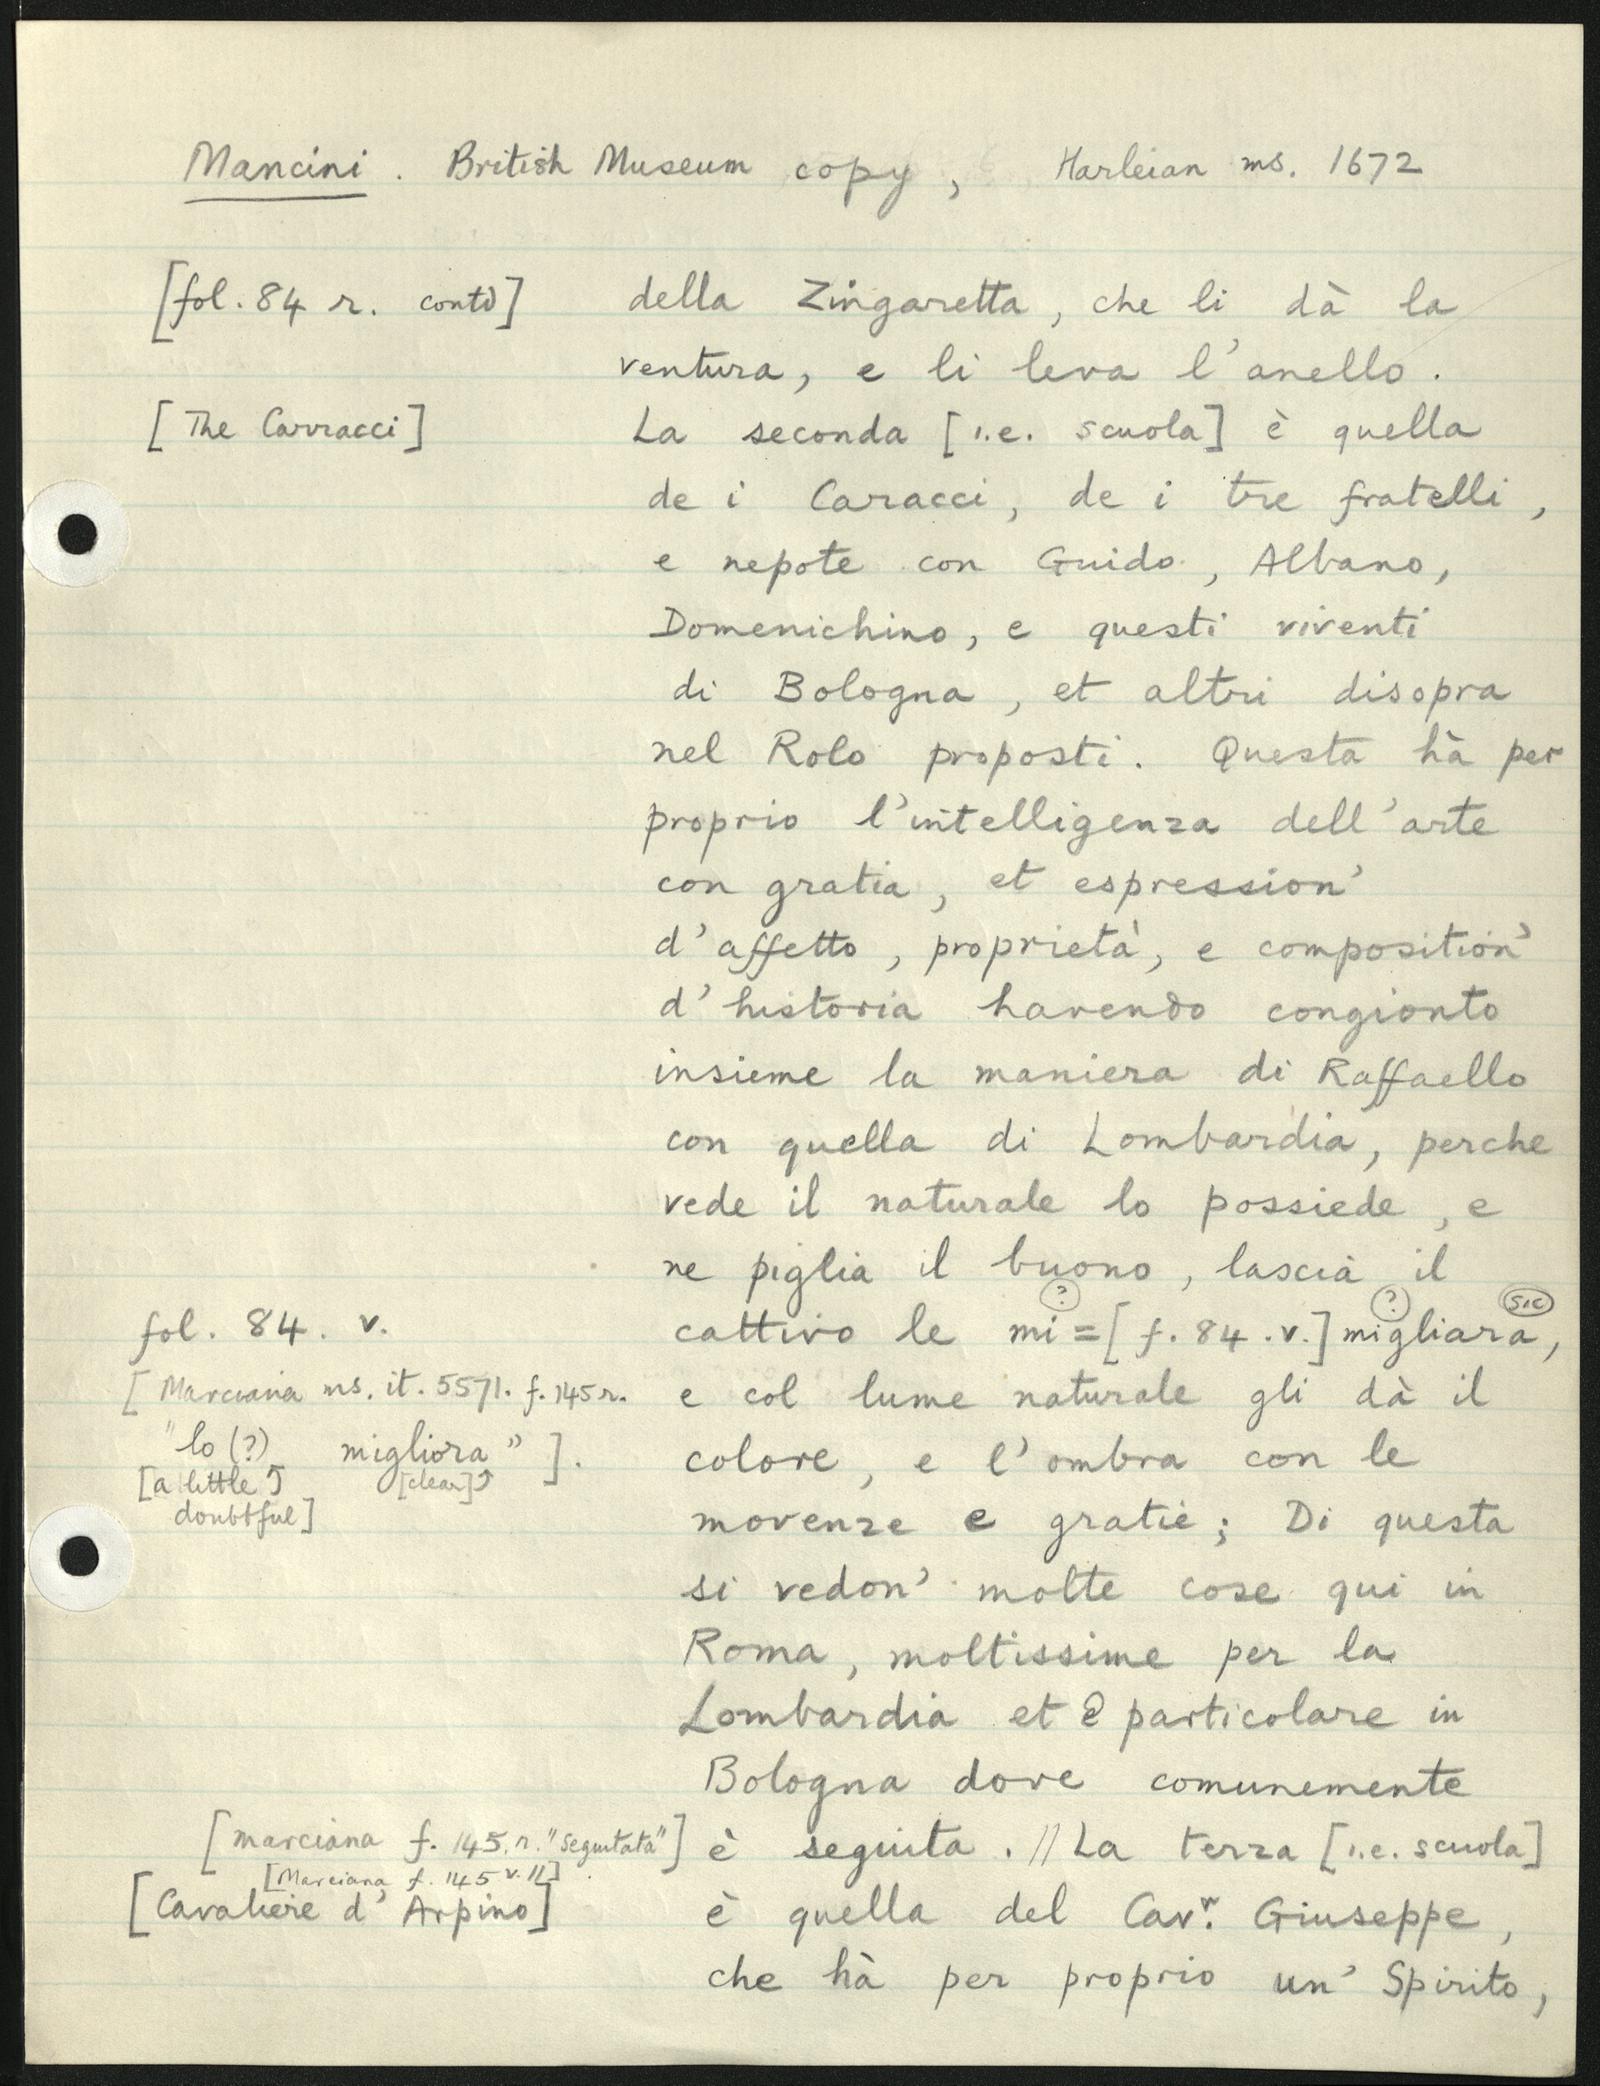 Mancini. British Museum copy, Harleian ms. 1672
[fol. 84 r. contd] della Zingaretta, che li dà la
ventura, e li leva l'anello.
[The Carracci] La seconda [i.e. scuola] è quella
de i Caracci, de i tre fratelli,
e nepote con Guido, Albano,
Domenichino, e questi viventi
di Bologna, et altri disopra
nel Rolo proposti. Questa hà per
proprio l'intelligenza dell'arte
con gratia, et espression'
d'affetto, proprietà, e composition'
d'historia havendo congionto
insieme la maniera di Raffaello
con quella di Lombardia, perche
vede il naturale lo possiede, e
ne piglia il buono, lascia il
? ? sic
fol. 84. v. cattivo le mi=[f. 84.v.] migliara,
[Marciana ms. it. 5571. f. 145 r. e col lume naturale gli dà il
"lo (?) migliora"]. colore, e l'ombra con le
[a little doubtful] [clear]
movenze e gratie; Di questa
si vedon' molte cose qui in
Roma, moltissime per la
Lombardia et particolare in
Bologna dove comunemente
[Marciana f. 145. r. "seguitata"] è seguita. // La terza [i.e. scuola]
[Marciana f. 145 v. //]
[Cavaliere d'Arpino] è quella del Cavr. Giuseppe,
che hà per proprio un' Spirito,